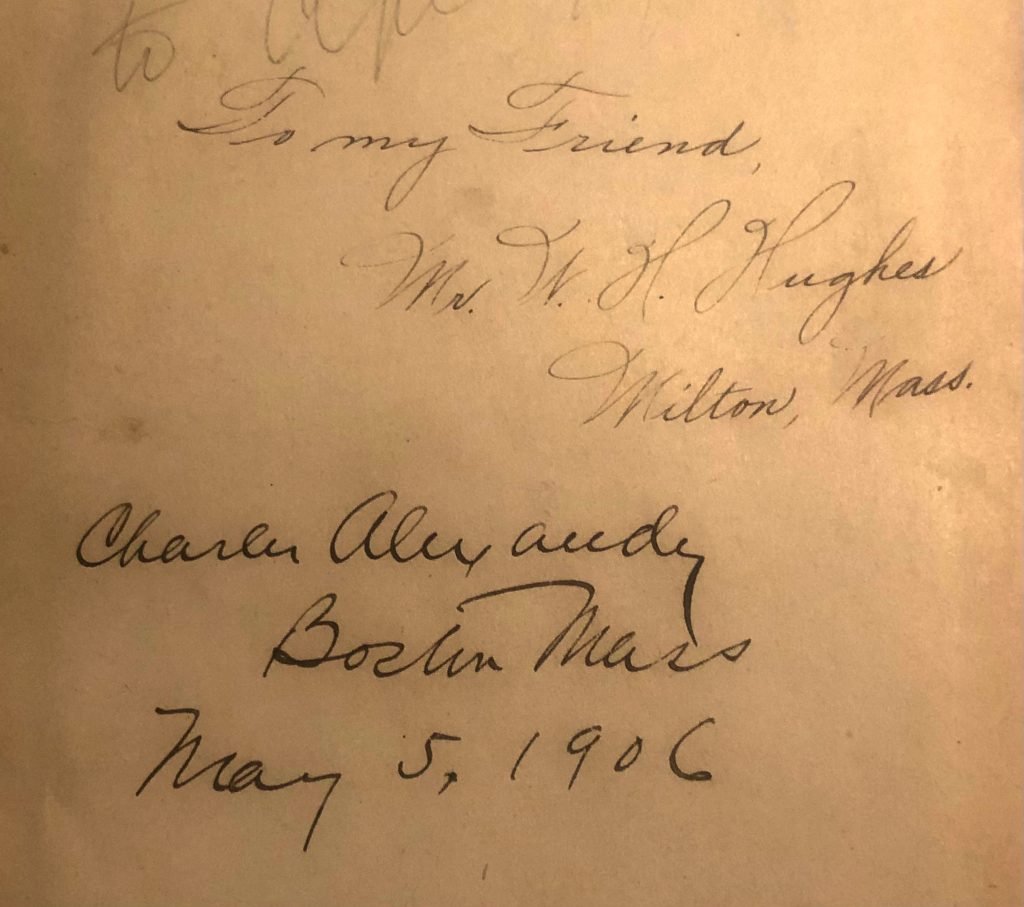 to
To my Friend,
Mr. W. H. Hughes
Milton, Mass.
Charles Alexander
Boston Mass
May 5, 1906